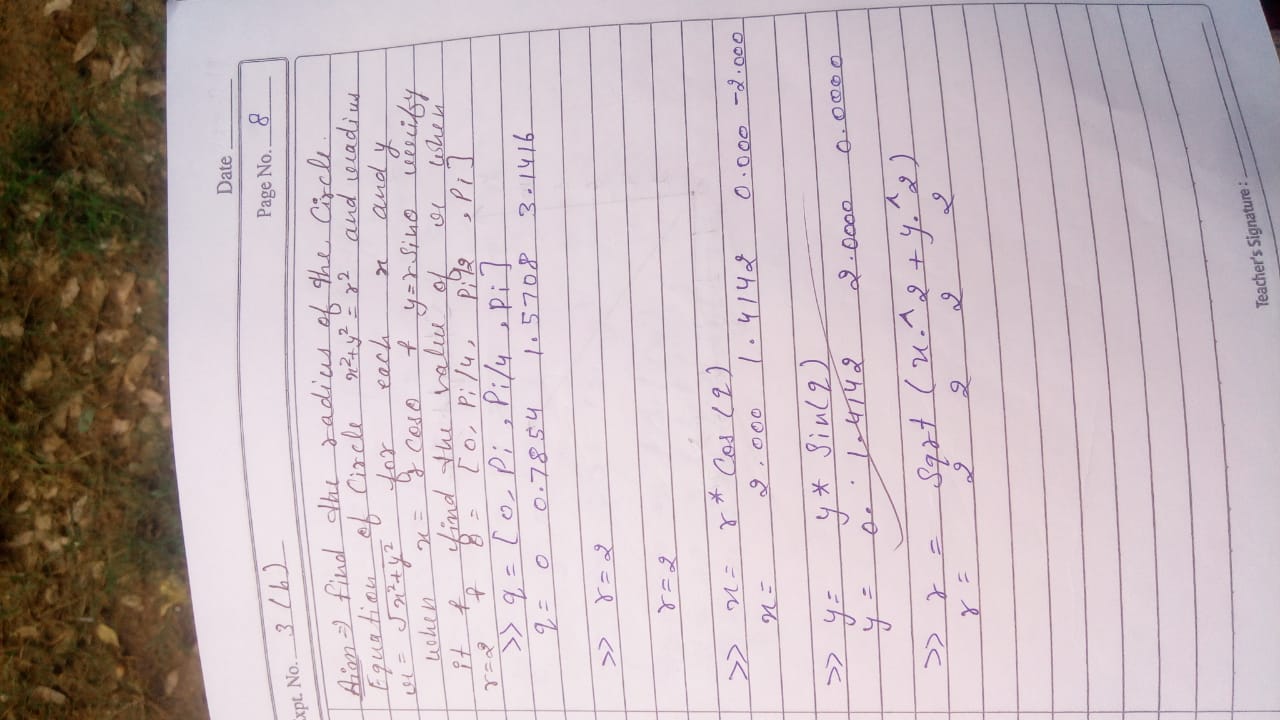 Date
Page No. 8
xpt. No. 3 (b)
Aim => find the radius of the Circle.
Equation of Circle x²+y² = r² and radius
r = √x²+y² for each x and y
when x = r cosθ & y = r sinθ verify
it & find the value of r when
r=2 & θ = [0, Pi/4, Pi/2, Pi]
>> q = [0, Pi, Pi/4, Pi]
q = 0 0.7854 1.5708 3.1416
>> r=2
r=2
>> x = r* Cos(q)
x = 2.000 1.4142 0.000 -2.000
>> y = y* Sin(q)
y = 0. 1.4142 2.0000 0.0000
>> r = Sqrt (x.^2 + y.^2)
r = 2 2 2 2
Teacher's Signature :